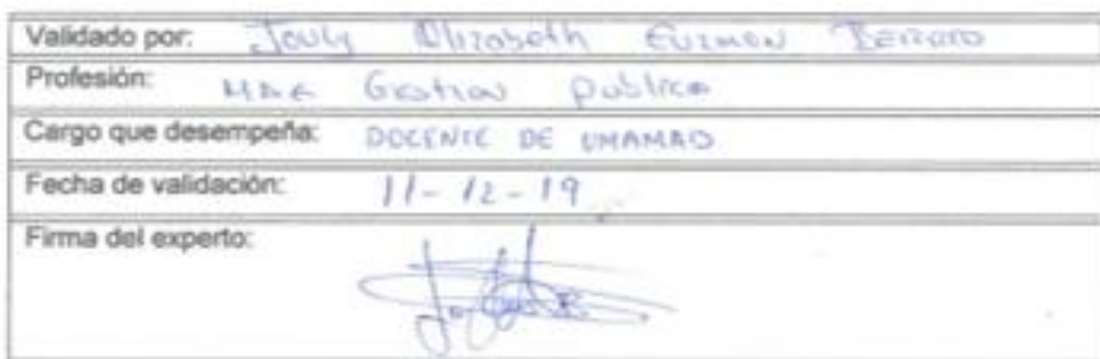 Validado por: Jouly Elizabeth Guzmon
Profesión: MBA Gestion Publica
Cargo que desempeña: DOCENTE DE
Fecha de validación: 11-12-19
Firma del experto: